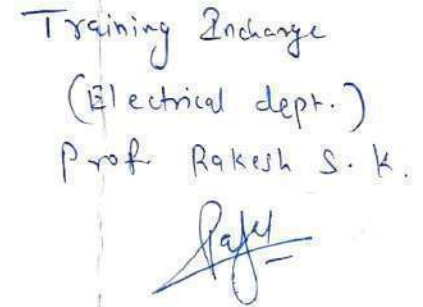 Training Incharge
(Electrical dept.)
Prof Rakesh S. K.